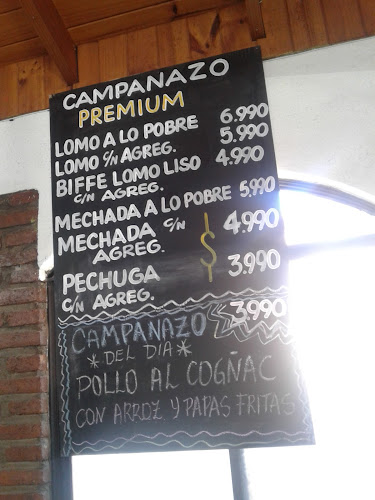 CAMPANAZO
PREMIUM
LOMO A LO POBRE 6.990
LOMO C/N AGREG. 5.990
BIFFE LOMO LISO 4.990
C/N AGREG.
MECHADA A LO POBRE 5.990
MECHADA C/N 4.990
AGREG.
$
PECHUGA 3.990
C/N AGREG.
CAMPANAZO 3.990
*DEL DIA*
POLLO AL COGÑAC
CON ARROZ Y PAPAS FRITAS